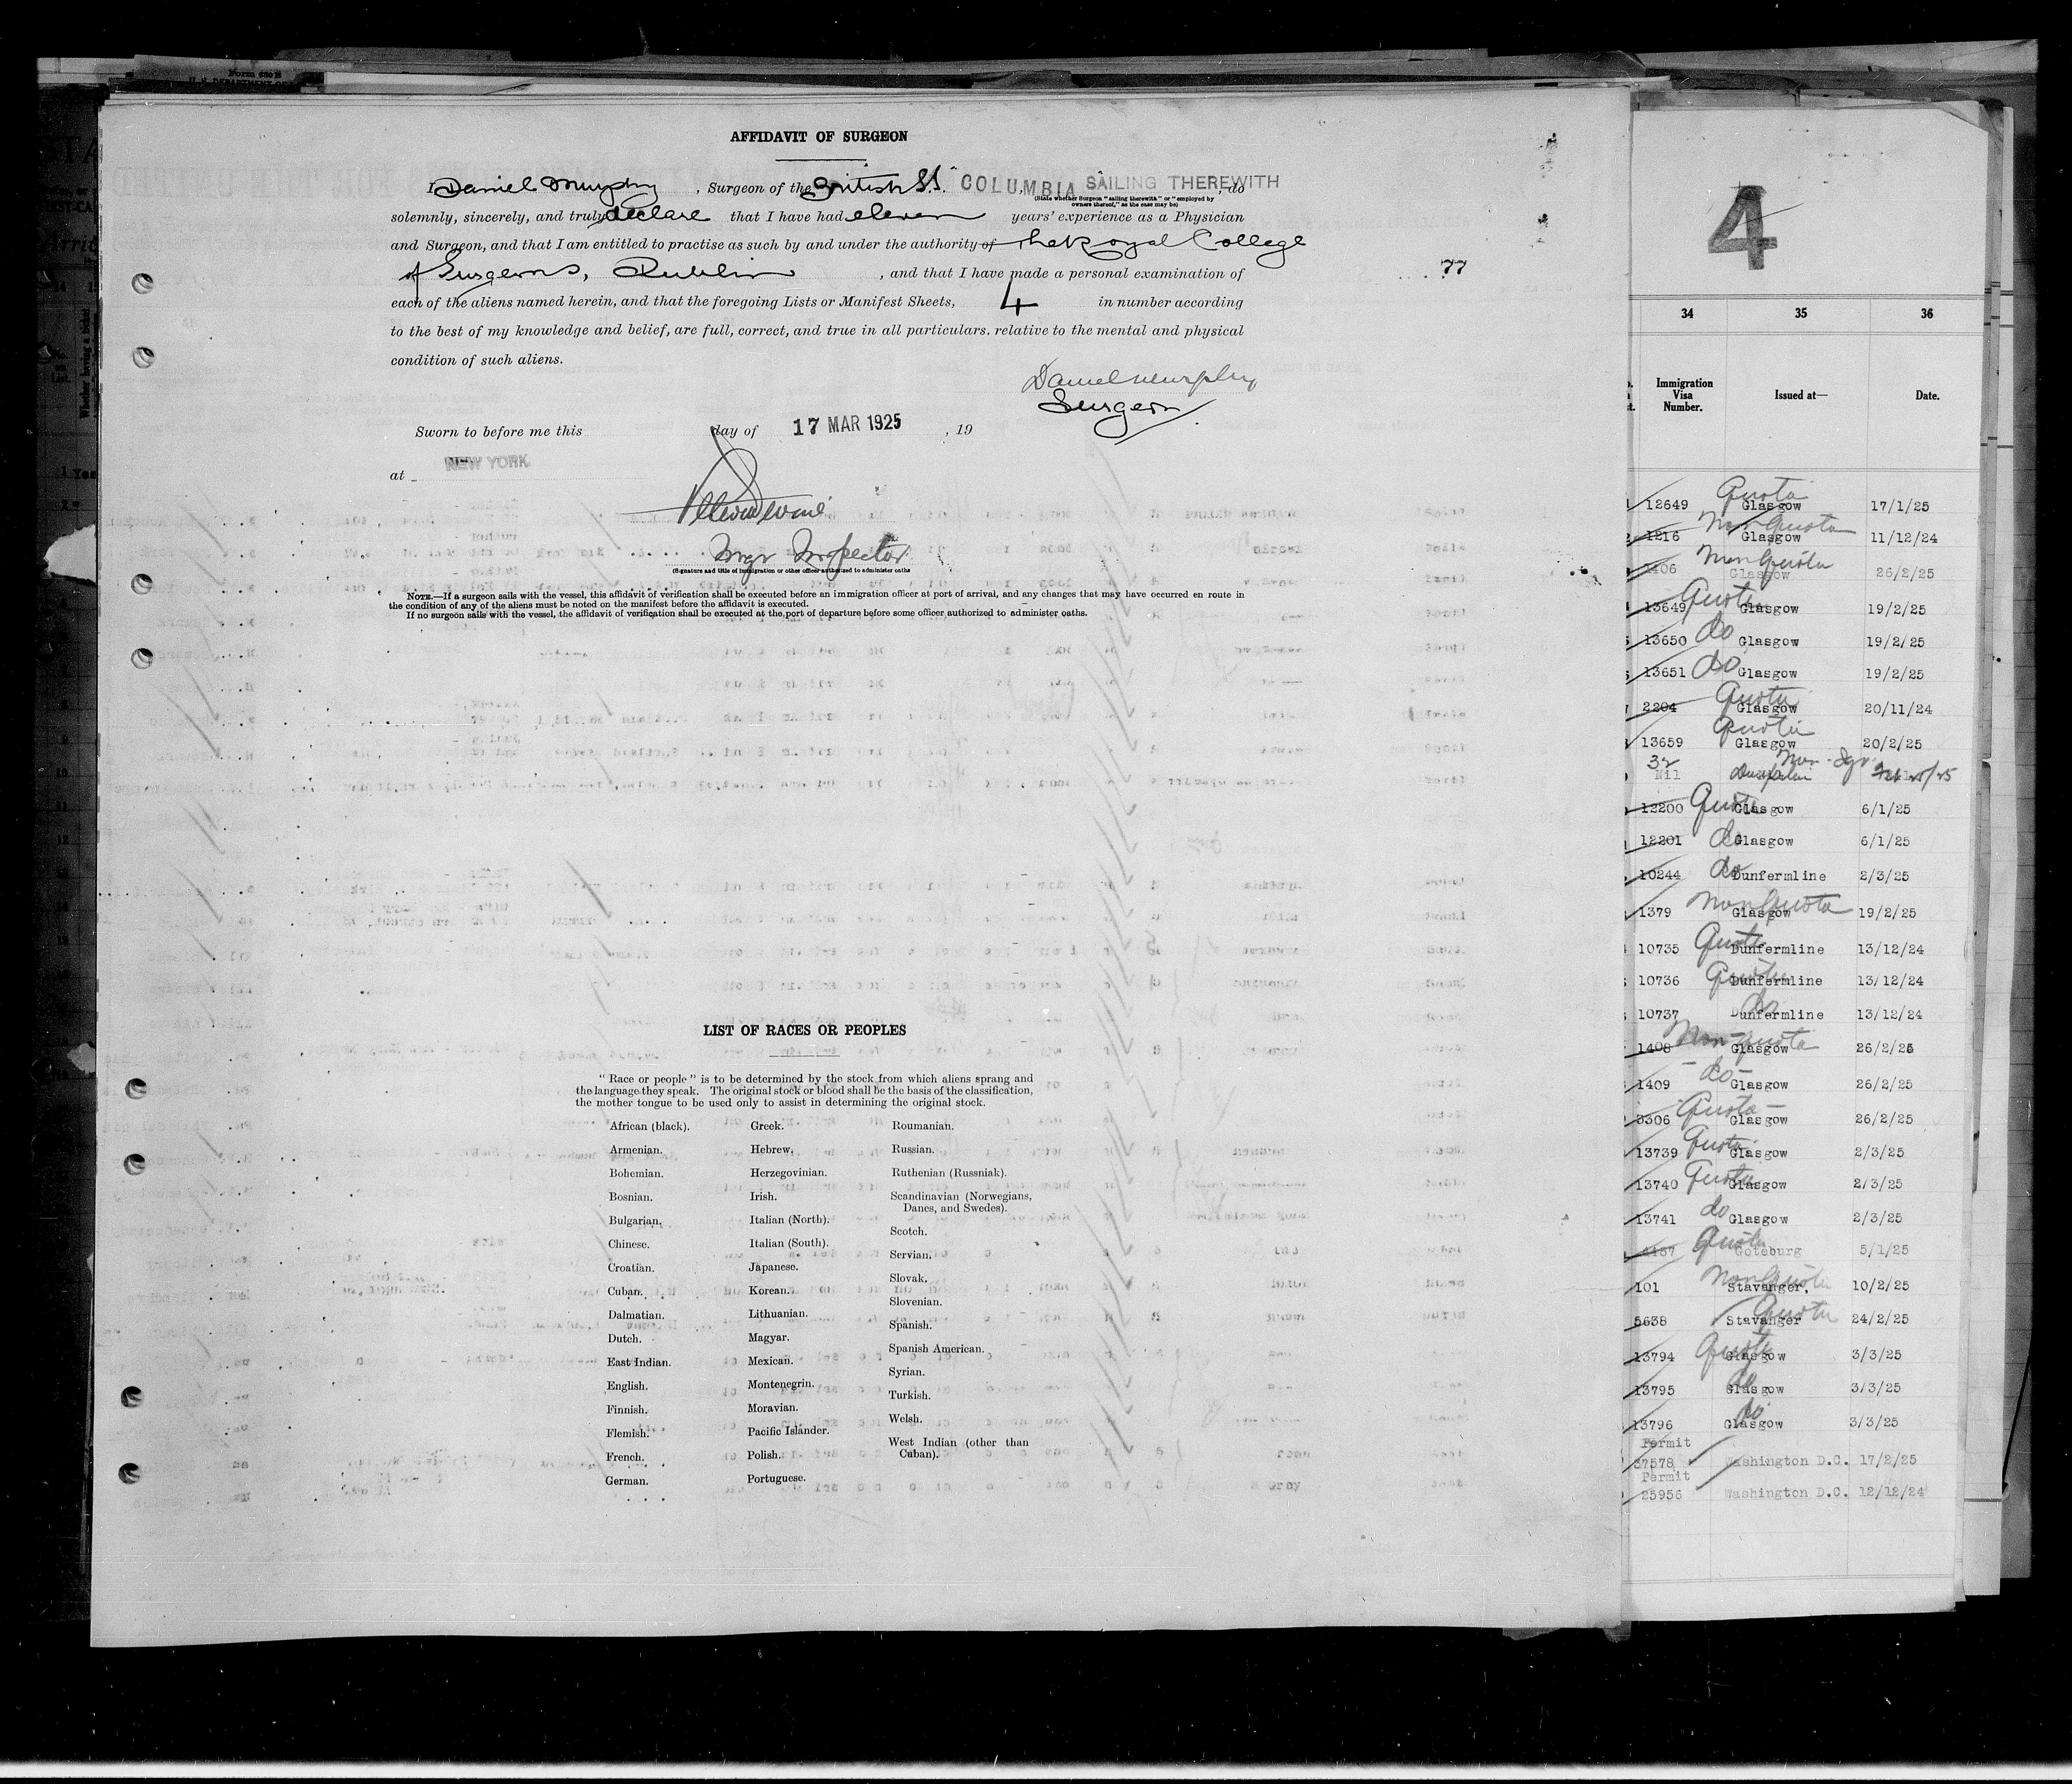 Form 630 B
AFFIDAVIT OF SURGEON
I Daniel Murphy, Surgeon of the British S.S. COLUMBIA SAILING THEREWITH, do
(State whether Surgeon "sailing therewith" or "employed by
owners thereof," as the case may be)
solemnly, sincerely, and truly declare that I have had eleven years' experience as a Physician
and Surgeon, and that I am entitled to practise as such by and under the authority of The Royal College
of Surgeons, Dublin, and that I have made a personal examination of
77
each of the aliens named herein, and that the foregoing Lists or Manifest Sheets, 4 in number according
to the best of my knowledge and belief, are full, correct, and true in all particulars, relative to the mental and physical
condition of such aliens.
Daniel Murphy
Surgeon
Sworn to before me this day of 17 MAR 1925, 19
at NEW YORK
Imgr Inspector
(Signature and title of immigration or other officer authorized to administer oaths
NOTE.—If a surgeon sails with the vessel, this affidavit of verification shall be executed before an immigration officer at port of arrival, and any changes that may have occurred en route in
the condition of any of the aliens must be noted on the manifest before the affidavit is executed.
If no surgeon sails with the vessel, the affidavit of verification shall be executed at the port of departure before some officer authorized to administer oaths.
LIST OF RACES OR PEOPLES
"Race or people" is to be determined by the stock from which aliens sprang and
the language they speak. The original stock or blood shall be the basis of the classification,
the mother tongue to be used only to assist in determining the original stock.
African (black).
Armenian.
Bohemian.
Bosnian.
Bulgarian.
Chinese.
Croatian.
Cuban.
Dalmatian.
Dutch.
East Indian.
English.
Finnish.
Flemish.
French.
German.
Greek.
Hebrew.
Herzegovinian.
Irish.
Italian (North).
Italian (South).
Japanese.
Korean.
Lithuanian.
Magyar.
Mexican.
Montenegrin.
Moravian.
Pacific Islander.
Polish.
Portuguese.
Roumanian.
Russian.
Ruthenian (Russniak).
Scandinavian (Norwegians,
Danes, and Swedes).
Scotch.
Servian.
Slovak.
Slovenian.
Spanish.
Spanish American.
Syrian.
Turkish.
Welsh.
West Indian (other than
Cuban).
4
34 35 36
Immigration Visa Number. Issued at— Date.
12649 Quota Glasgow 17/1/25
1216 Non Quota Glasgow 11/12/24
Non Quota Glasgow 26/2/25
13649 Quota Glasgow 19/2/25
13650 do Glasgow 19/2/25
13651 do Glasgow 19/2/25
2204 Quota Glasgow 20/11/24
13659 Quota Glasgow 20/2/25
32 Nil
12200 Quota Glasgow 6/1/25
12201 do Glasgow 6/1/25
10244 do Dunfermline 2/3/25
1379 Non Quota Glasgow 19/2/25
10735 Quota Dunfermline 13/12/24
10736 Quota Dunfermline 13/12/24
10737 do Dunfermline 13/12/24
1408 Non Quota Glasgow 26/2/25
1409 -do- Glasgow 26/2/25
3306 Quota Glasgow 26/2/25
13739 Quota Glasgow 2/3/25
13740 Quota Glasgow 2/3/25
13741 do Glasgow 2/3/25
Quota Goteburg 5/1/25
101 Non Quota Stavanger, 10/2/25
5638 Quota Stavanger 24/2/25
13794 Quota Glasgow 3/3/25
13795 do Glasgow 3/3/25
13796 do Glasgow 3/3/25
Permit
37578 Washington D.C. 17/2/25
Permit
25956 Washington D.C. 12/12/24